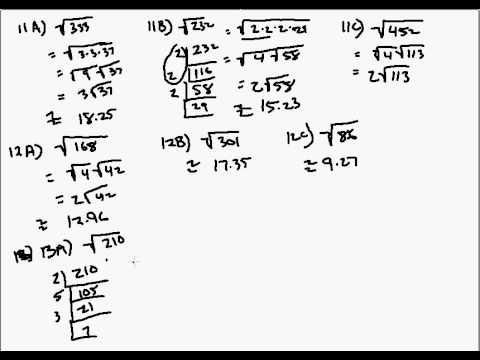 11A) √333
= √3·3·37
= √9 √37
= 3√37
≈ 18.25
11B) √232 = √2·2·2·29
2) 232 = √4 √58
2 116
2 58 = 2√58
29 ≈ 15.23
11C) √452
= √4 √113
= 2√113
12A) √168
= √4 √42
= 2√42
≈ 12.96
12B) √301
≈ 17.35
12C) √86
≈ 9.27
13A) √210
2) 210
5 105
3 21
7